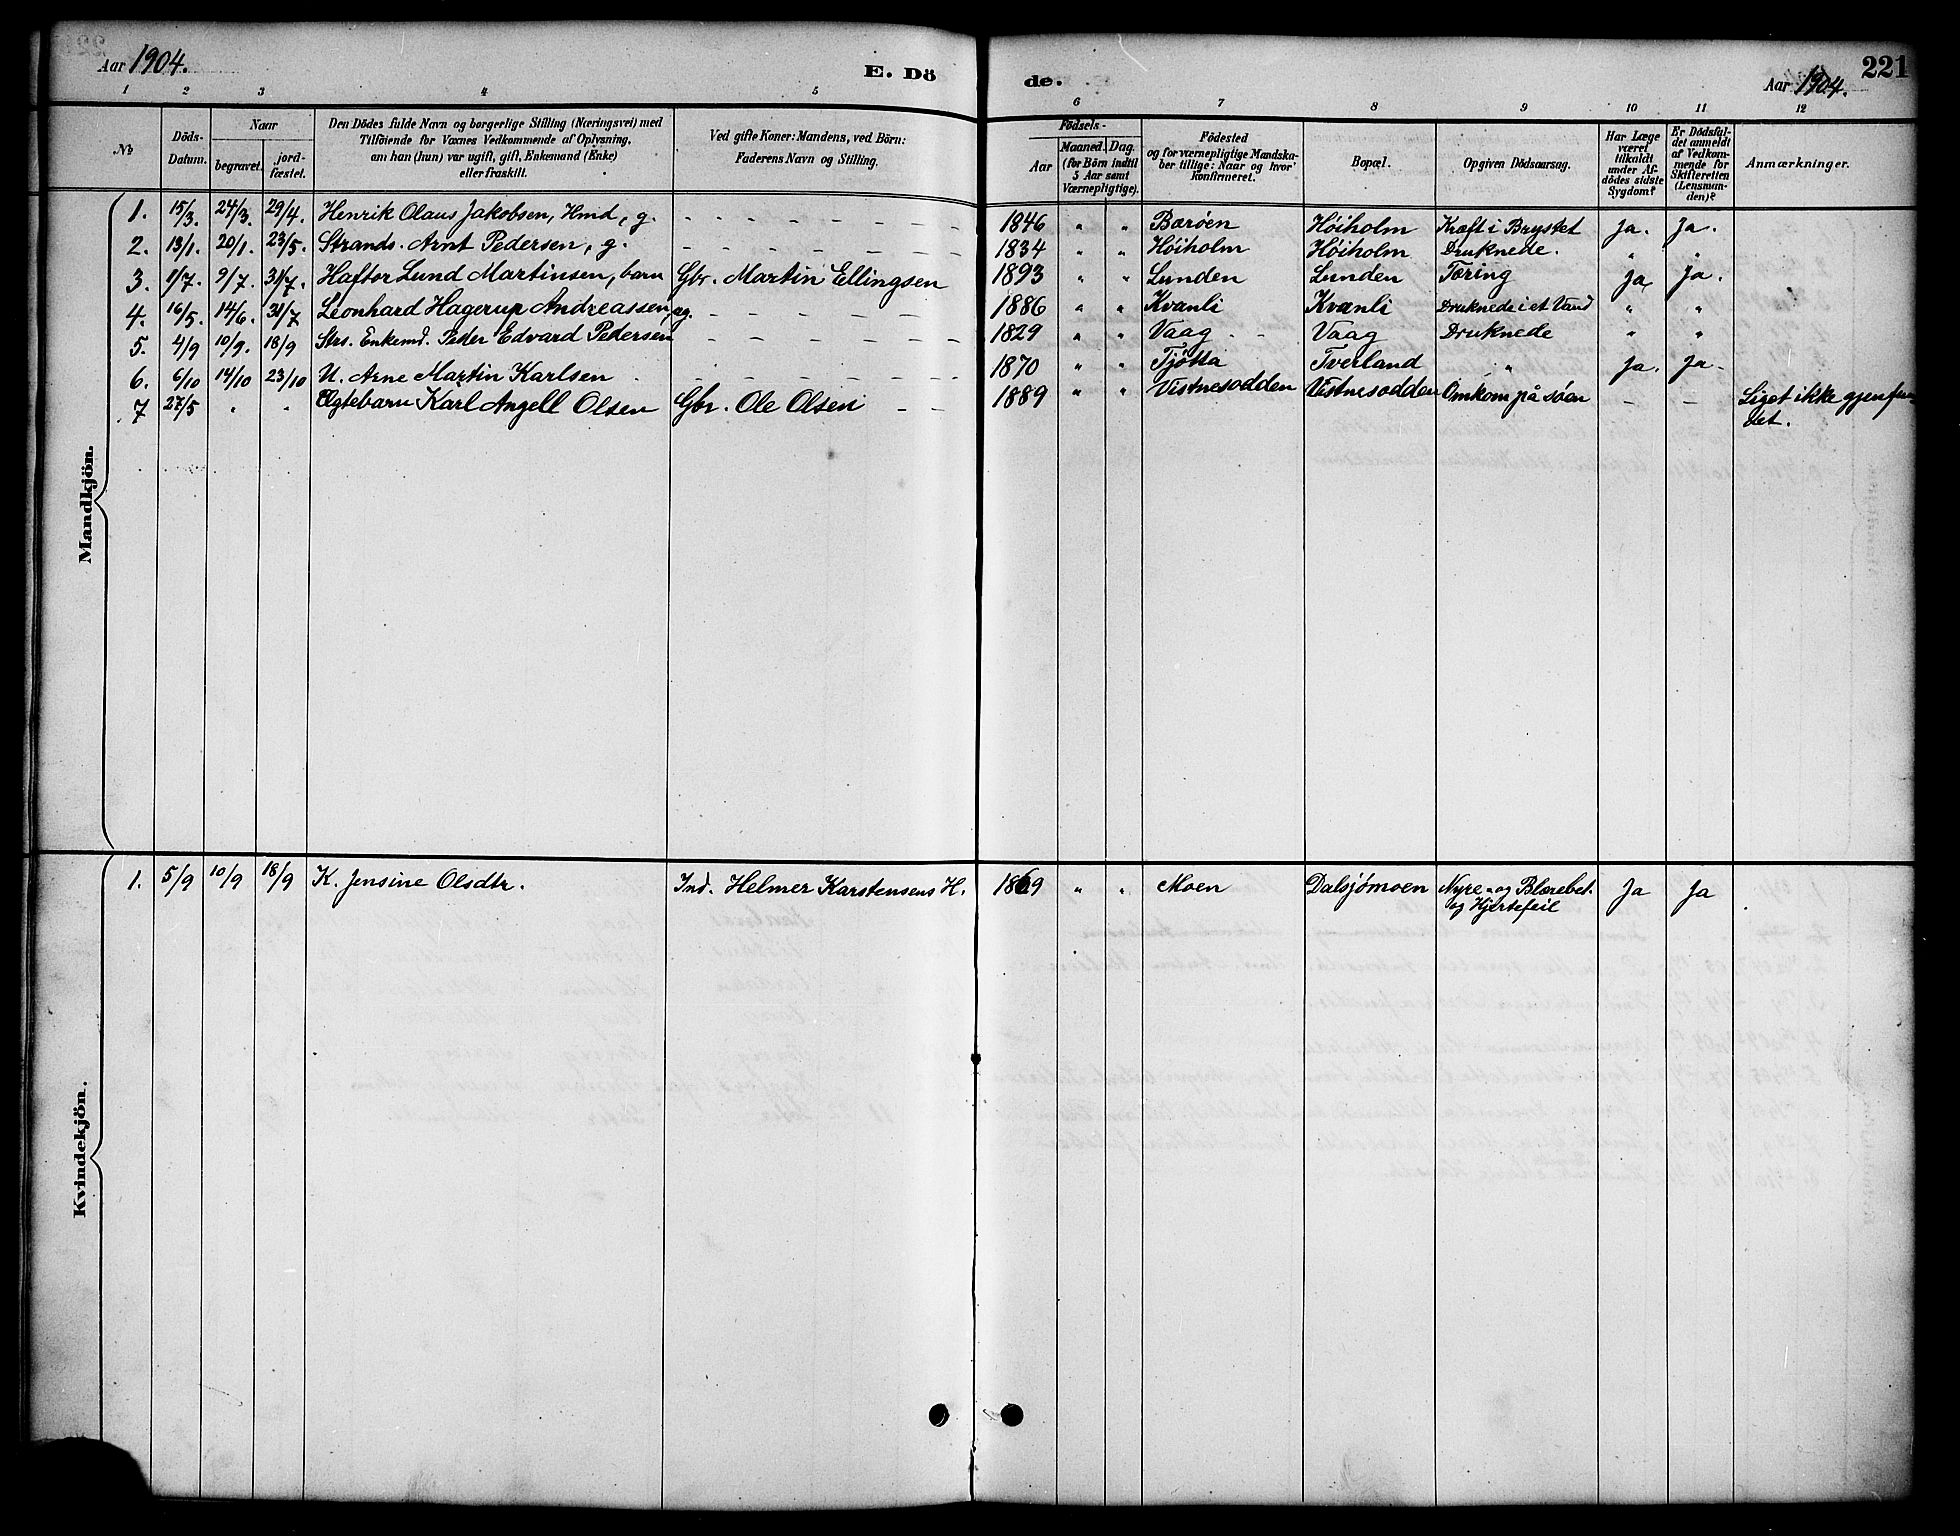 Aar 1904. E. Dö de. Aar 1904. 221
1 2 3 4 5 6 7 8 9 10 11 12
No
Döds-Datum.
Naar
begravet.
jordfæstet.
Den Dödes fulde Navn og borgerlige Stilling (Næringsvei) med
Tilföiende for Voxnes Vedkommende af Oplysning,
om han (hun) var ugift, gift, Enkemand (Enke)
eller fraskilt.
Ved gifte Koner: Mandens, ved Börn:
Faderens Navn og Stilling.
Födsels-
Aar
Maaned. Dag.
(for Börn indtil
5 Aar samt
Værnepligtige).
Födested
og for værnepligtige Mandska-
ber tillige: Naar og hvor
konfirmeret.
Bopæl.
Opgiven Dödsaarsag.
Har Læge
været
tilkaldt
under Af-
dödes sidste
Sygdom?
Er Dödsfal-
det anmeldt
af Vedkom-
mende for
Skifteretten
(Lensman-
den)?
Anmærkninger.
Mandkjön.
1. 15/3. 24/3. 29/4. Henrik Olaus Jakobsen, Hmd, g. - - - - - - - 1846 " " Barøen Høiholm Kræft i Brystet Ja. Ja.
2. 13/1. 20/1. 23/5. Strands. Arnt Pedersen, g. - - - - - - - 1834 " " Høiholm Høiholm Druknede. " "
3. 1/7. 9/7. 31/7. Haftor Lund Martinsen, barn Gbr. Martin Ellingsen 1893 " " Lunden Lunden Tæring Ja Ja.
4. 16/5. 14/6. 31/7 Leonhard Hagerup Andreassen, ug. - - - - - - 1886 " " Kvanli Kvænli Druknede i et Vand " "
5. 4/9 10/9. 18/9 Strs. Enkemd. Peder Edvard Pedersen - - - - - - - 1829 " " Vaag - - Vaag Druknede " "
6. 6/10 14/10 23/10 U. Arne Martin Karlsen - - - - - - - 1870 " " Tjøtta Tverland " Ja. Ja -
7 27/5 " " Ægtebarn Karl Angell Olsen Gbr. Ole Olsen - - 1889 " " Vistnesodden Vistnesodden Omkom på søen - - Liget ikke gjenfun-
det.
Kvindekjön.
1. 5/9 10/9 18/9 K. Jensine Olsdtr. Ind. Helmer Karstensens H. 1869 " " Moen Dalsjømoen Nyre- og Blærebet. Ja Ja
og Hjertefeil